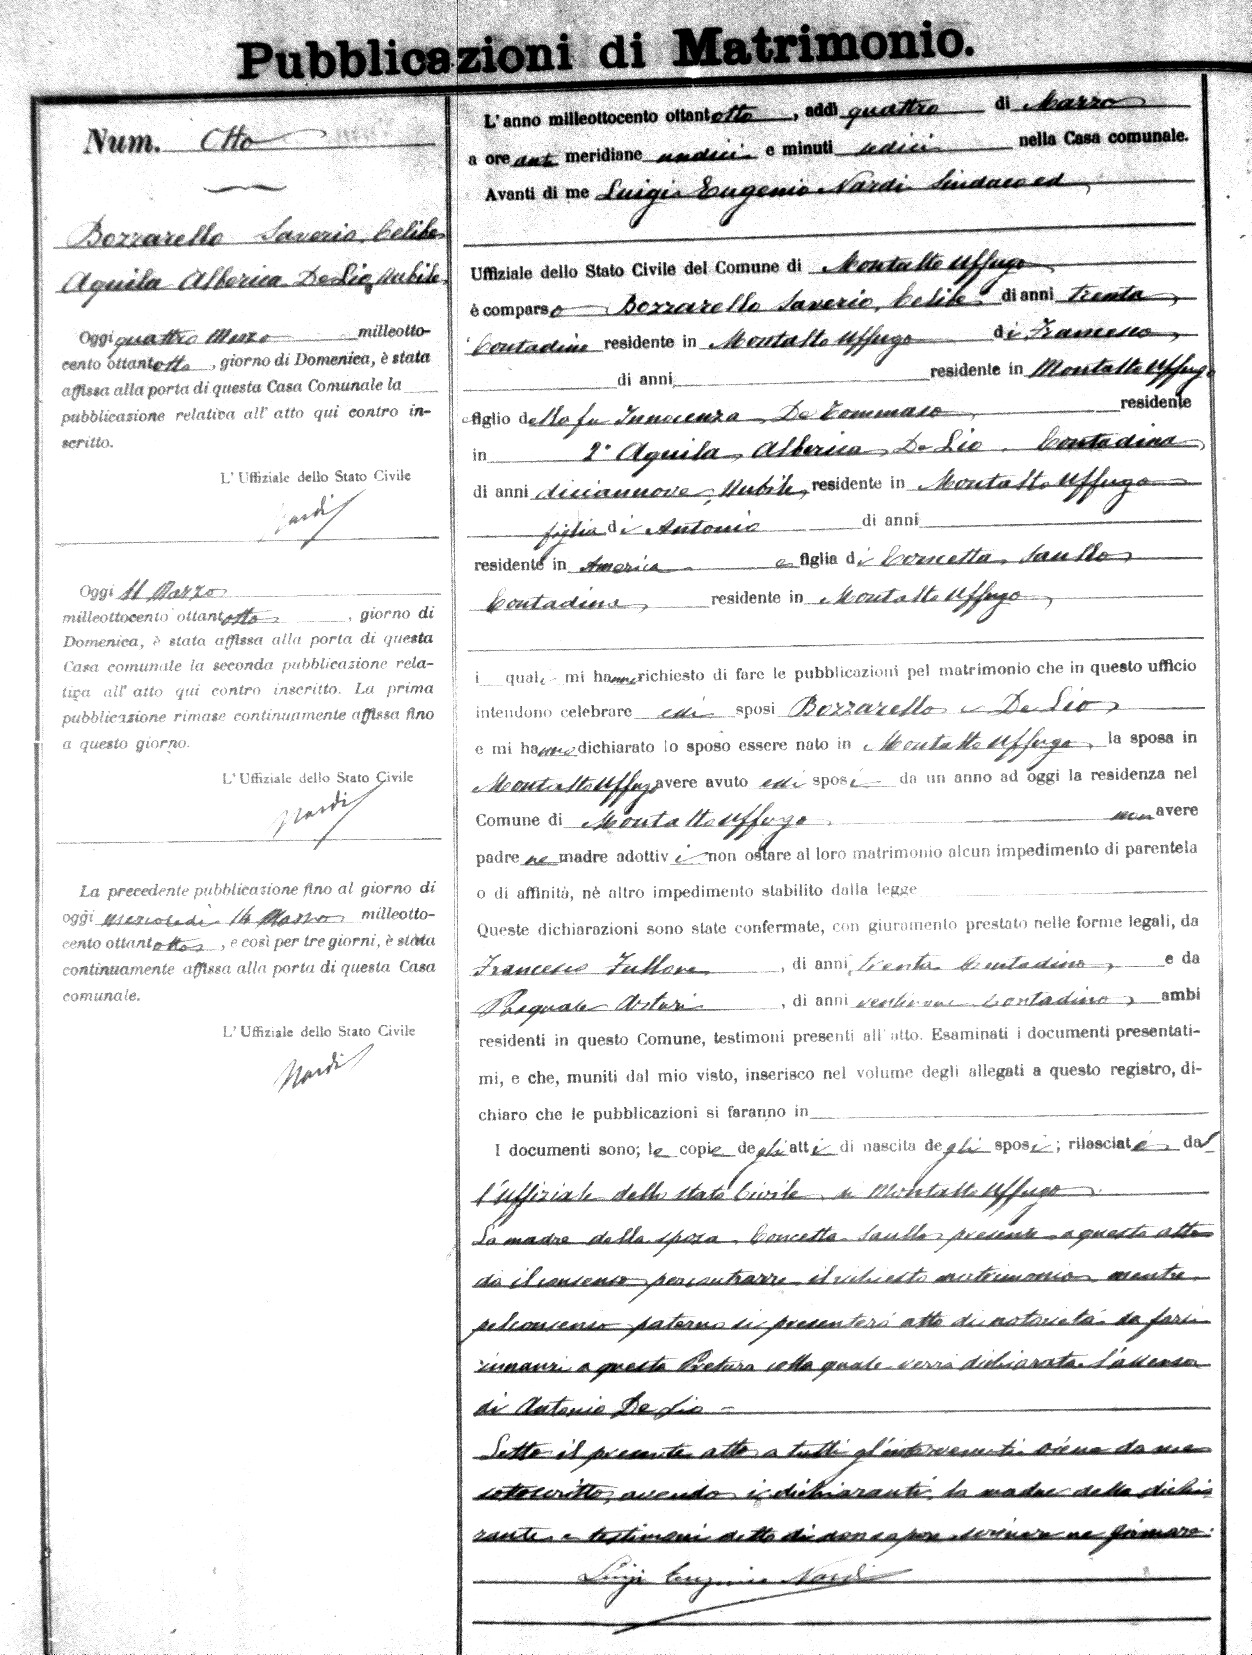 Pubblicazioni di Matrimonio.
Num. Otto
Bozzarello Saverio, Celibe
Aquila Alberica De Lio, Nubile
Oggi quattro Marzo milleotto-
cento ottantotto, giorno di Domenica, è stata
affissa alla porta di questa Casa Comunale la
pubblicazione relativa all' atto qui contro in-
scritto.
L' Uffiziale dello Stato Civile
Nardi
Oggi 11 Marzo
milleottocento ottantotto, giorno di
Domenica, è stata affissa alla porta di questa
Casa comunale la seconda pubblicazione rela-
tiva all' atto qui contro inscritto. La prima
pubblicazione rimase continuamente affissa fino
a questo giorno.
L' Uffiziale dello Stato Civile
Nardi
La precedente pubblicazione fino al giorno di
oggi mercoledì 14 Marzo milleotto-
cento ottantotto, e così per tre giorni, è stata
continuamente affissa alla porta di questa Casa
comunale.
L' Uffiziale dello Stato Civile
Nardi
L' anno milleottocento ottantotto, addì quattro di Marzo
a ore ant meridiane undici e minuti sedici nella Casa comunale.
Avanti di me Luigi Eugenio Nardi Sindaco ed
Uffiziale dello Stato Civile del Comune di Montalto Uffugo
è comparso Bozzarello Saverio, Celibe di anni trenta,
Contadino residente in Montalto Uffugo di Francesco,
di anni residente in Montalto Uffugo
e figlio della fu Innocenza De Tommaso, residente
in 2° Aquila, Alberica, De Lio, Contadina,
di anni diciannove, Nubile, residente in Montalto Uffugo
figlia di Antonio di anni
residente in America e figlia di Concetta Saullo,
Contadina, residente in Montalto Uffugo,
i quali mi hanno richiesto di fare le pubblicazioni pel matrimonio che in questo ufficio
intendono celebrare essi sposi Bozzarello e De Lio,
e mi hanno dichiarato lo sposo essere nato in Montalto Uffugo, la sposa in
Montalto Uffugo avere avuto essi sposi da un anno ad oggi la residenza nel
Comune di Montalto Uffugo, non avere
padre ne madre adottivi non ostare al loro matrimonio alcun impedimento di parentela
o di affinità, nè altro impedimento stabilito dalla legge
Queste dichiarazioni sono state confermate, con giuramento prestato nelle forme legali, da
Francesco Fullone, di anni trenta Contadino, e da
Pasquale Asturi, di anni ventinove Contadino, ambi
residenti in questo Comune, testimoni presenti all' atto. Esaminati i documenti presentati-
mi, e che, muniti dal mio visto, inserisco nel volume degli allegati a questo registro, di-
chiaro che le pubblicazioni si faranno in
I documenti sono; le copie degli atti di nascita degli sposi; rilasciate dal
l'Uffiziale dello stato Civile di Montalto Uffugo
La madre della sposa Concetta Saullo, presente a questo atto
dà il consenso per contrarre il richiesto matrimonio, mentre
pel consenso paterno si presenterà atto di notorietà da farsi
innanzi a questa Pretura colla quale verrà dichiarata l'assenza
di Antonio De Lio -
Letto il presente atto a tutti gl'intervenuti viene da me
sottoscritto, avendo i dichiaranti, la madre della dichia
rante e testimoni detto di non sapere scrivere ne firmare.
Luigi Eugenio Nardi